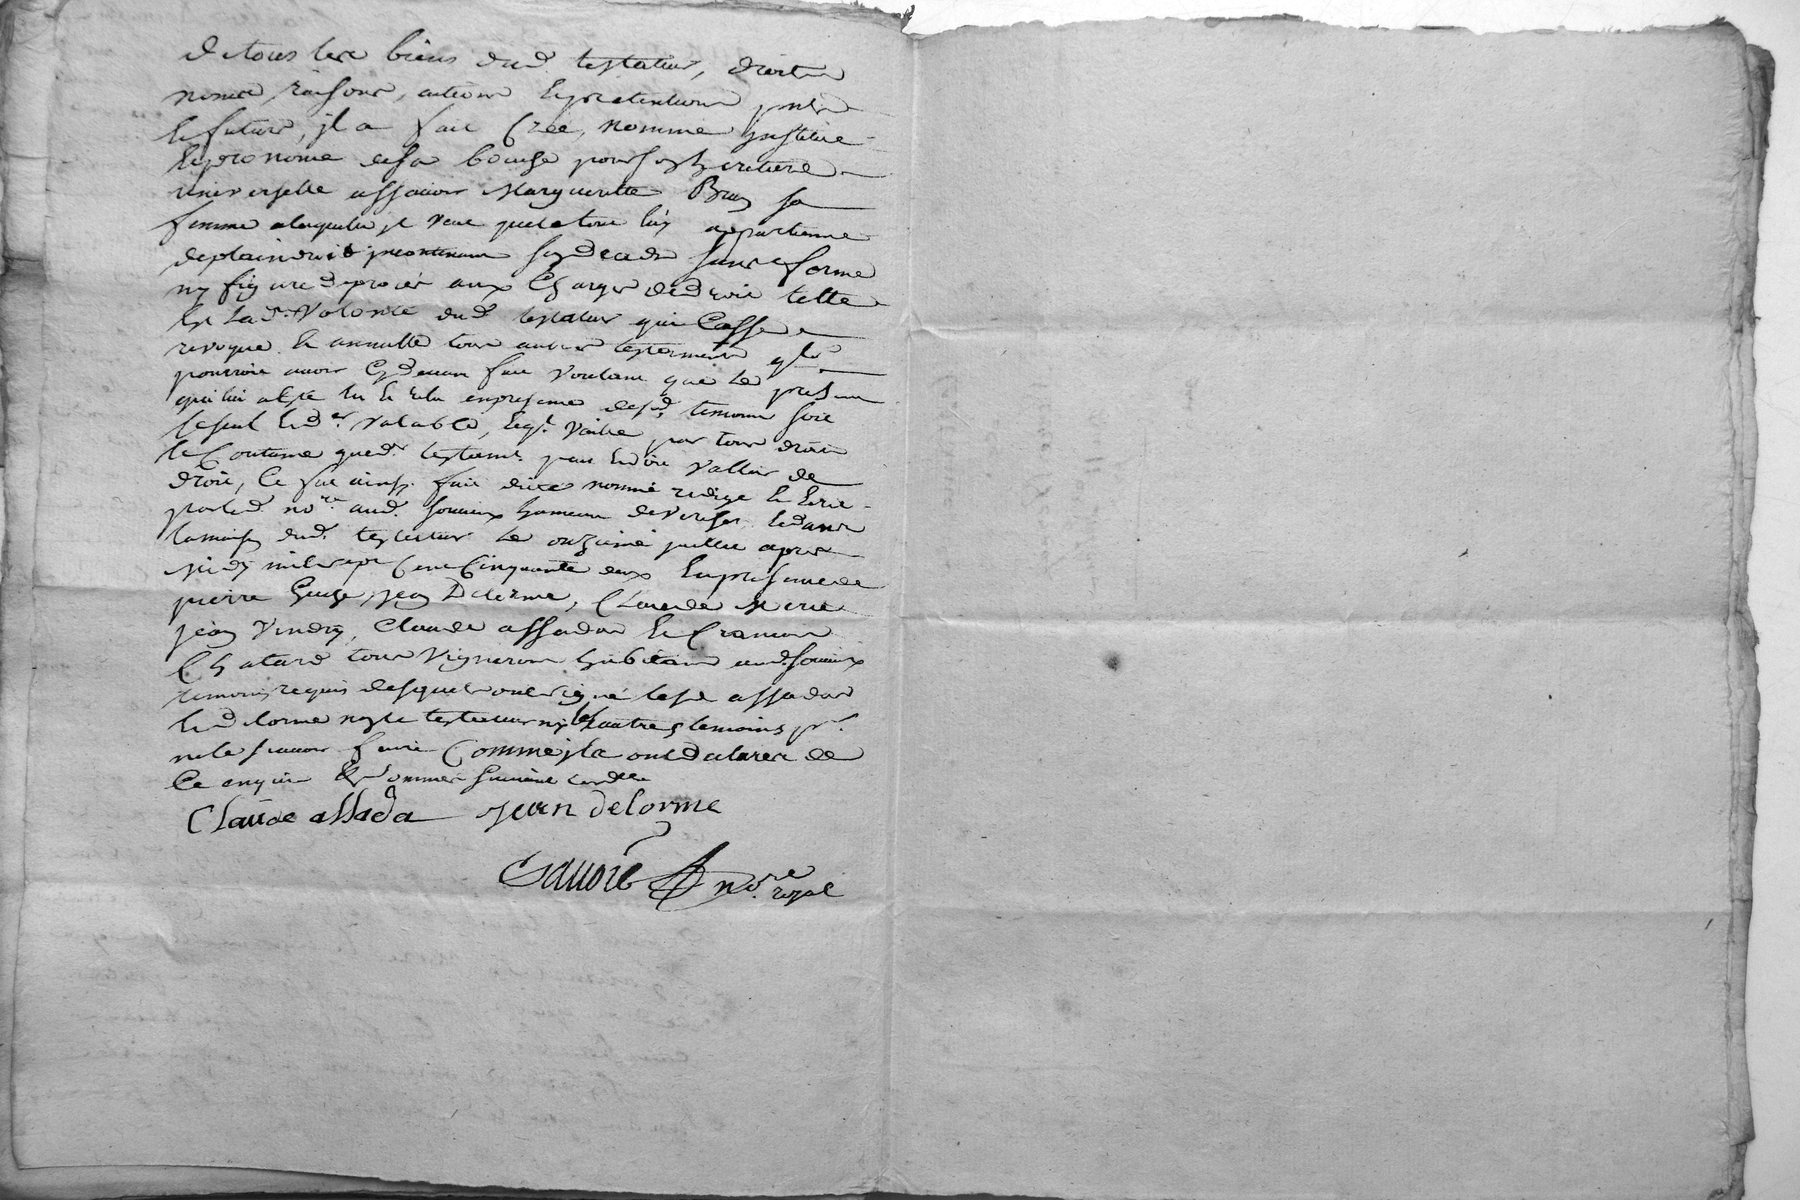 de tous les biens dud testateur, droits
noms raisons, actions et pretentions pnts
et future, jl a fait Créé, nommé jnstitue
et prononcé de sa bouche pour son heritiere
universelle assavoir Margueritte Brun sa
femme a laquelle jl veut que le tout luy appartienne
de plain droit jncontinant son deceds sans forme
ny figure de procès aux Charges de droit telle
est lad. volonté dud testateur qui Casse
revoque et annulle tous autres testements qlz
pourroit avoir Cy devant fait voulant que le present
qui lui a esté lu et relu en presence desd temoins soit
le seul et der valable, et ql vaille par tous droit
et Coutume que d testamt peut et doit valloir de
droit, Ce fut ainsy fait dicté nommé redigé et ecrit
par led nore aud. hameau de et dans
la maison dud. testateur le onzieme juillet apres
midy mil sept Cent Cinquante deux En presence de
pierre jean Delorme, Claude
jean Vindry, Claude assada et
Chatard tous Vignerons habitans aud.
temoins requis desquels ont signé lesd assada
et d lorme non le testateur ny les autres temoins pr
ne le scavoir faire Comme jls ont declarer de
Ce enquis & sommés suivant
Claude assada jean delorme
nore royal